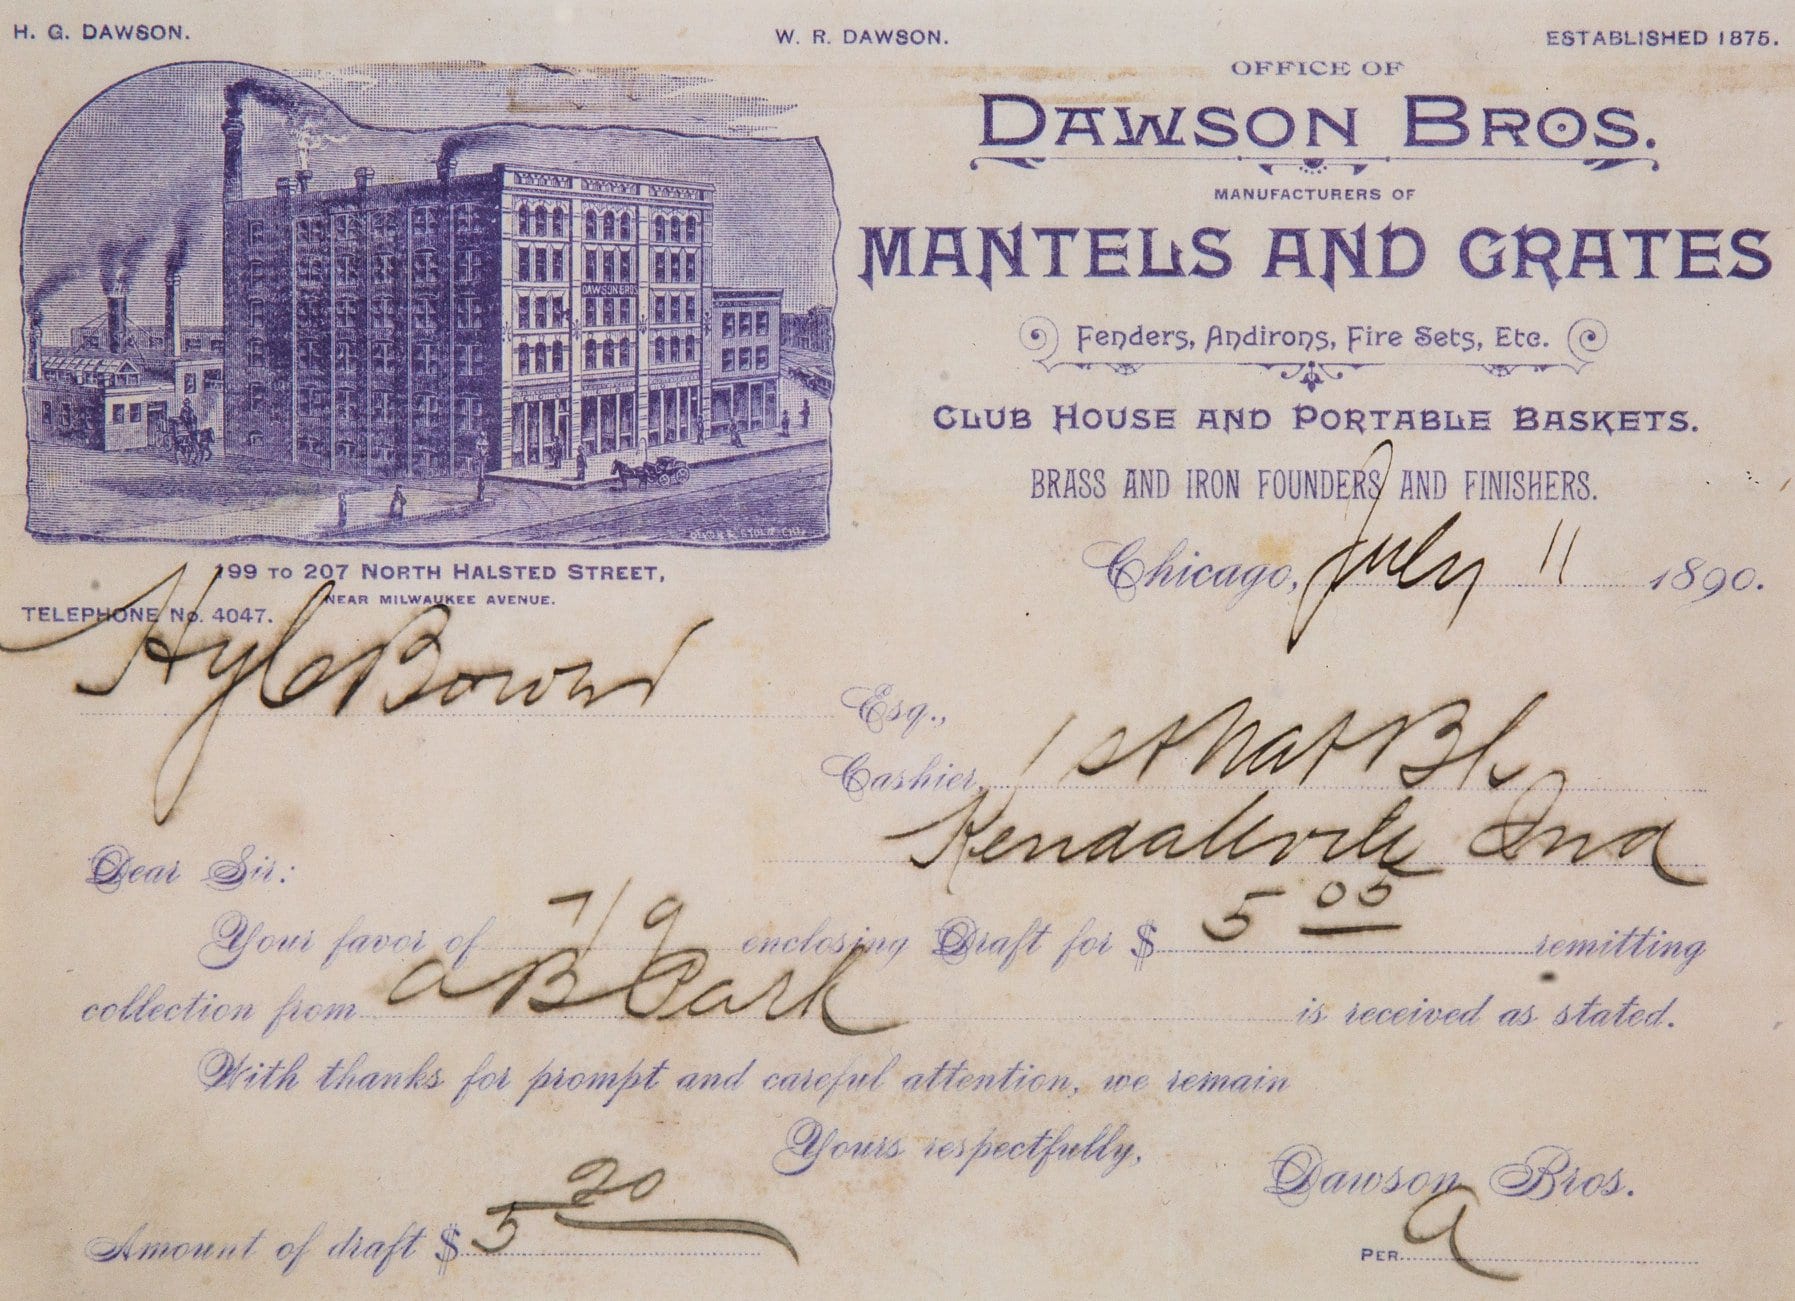 H. G. DAWSON. W. R. DAWSON. ESTABLISHED 1875.
OFFICE OF
DAWSON BROS.
MANUFACTURERS OF
MANTELS AND GRATES
Fenders, Andirons, Fire Sets, Etc.
CLUB HOUSE AND PORTABLE BASKETS.
BRASS AND IRON FOUNDERS AND FINISHERS.
DAWSON BROS
199 TO 207 NORTH HALSTED STREET,
NEAR MILWAUKEE AVENUE.
TELEPHONE No. 4047.
Chicago, July 11 1890.
Esq.,
Cashier, 1st Nat Bk
Kendallville Ind
Dear Sir:
Your favor of 7/9 enclosing Draft for $ 5 05 remitting
collection from A B Park is received as stated.
With thanks for prompt and careful attention, we remain
Yours respectfully,
Dawson Bros.
Amount of draft $ 5 20
PER